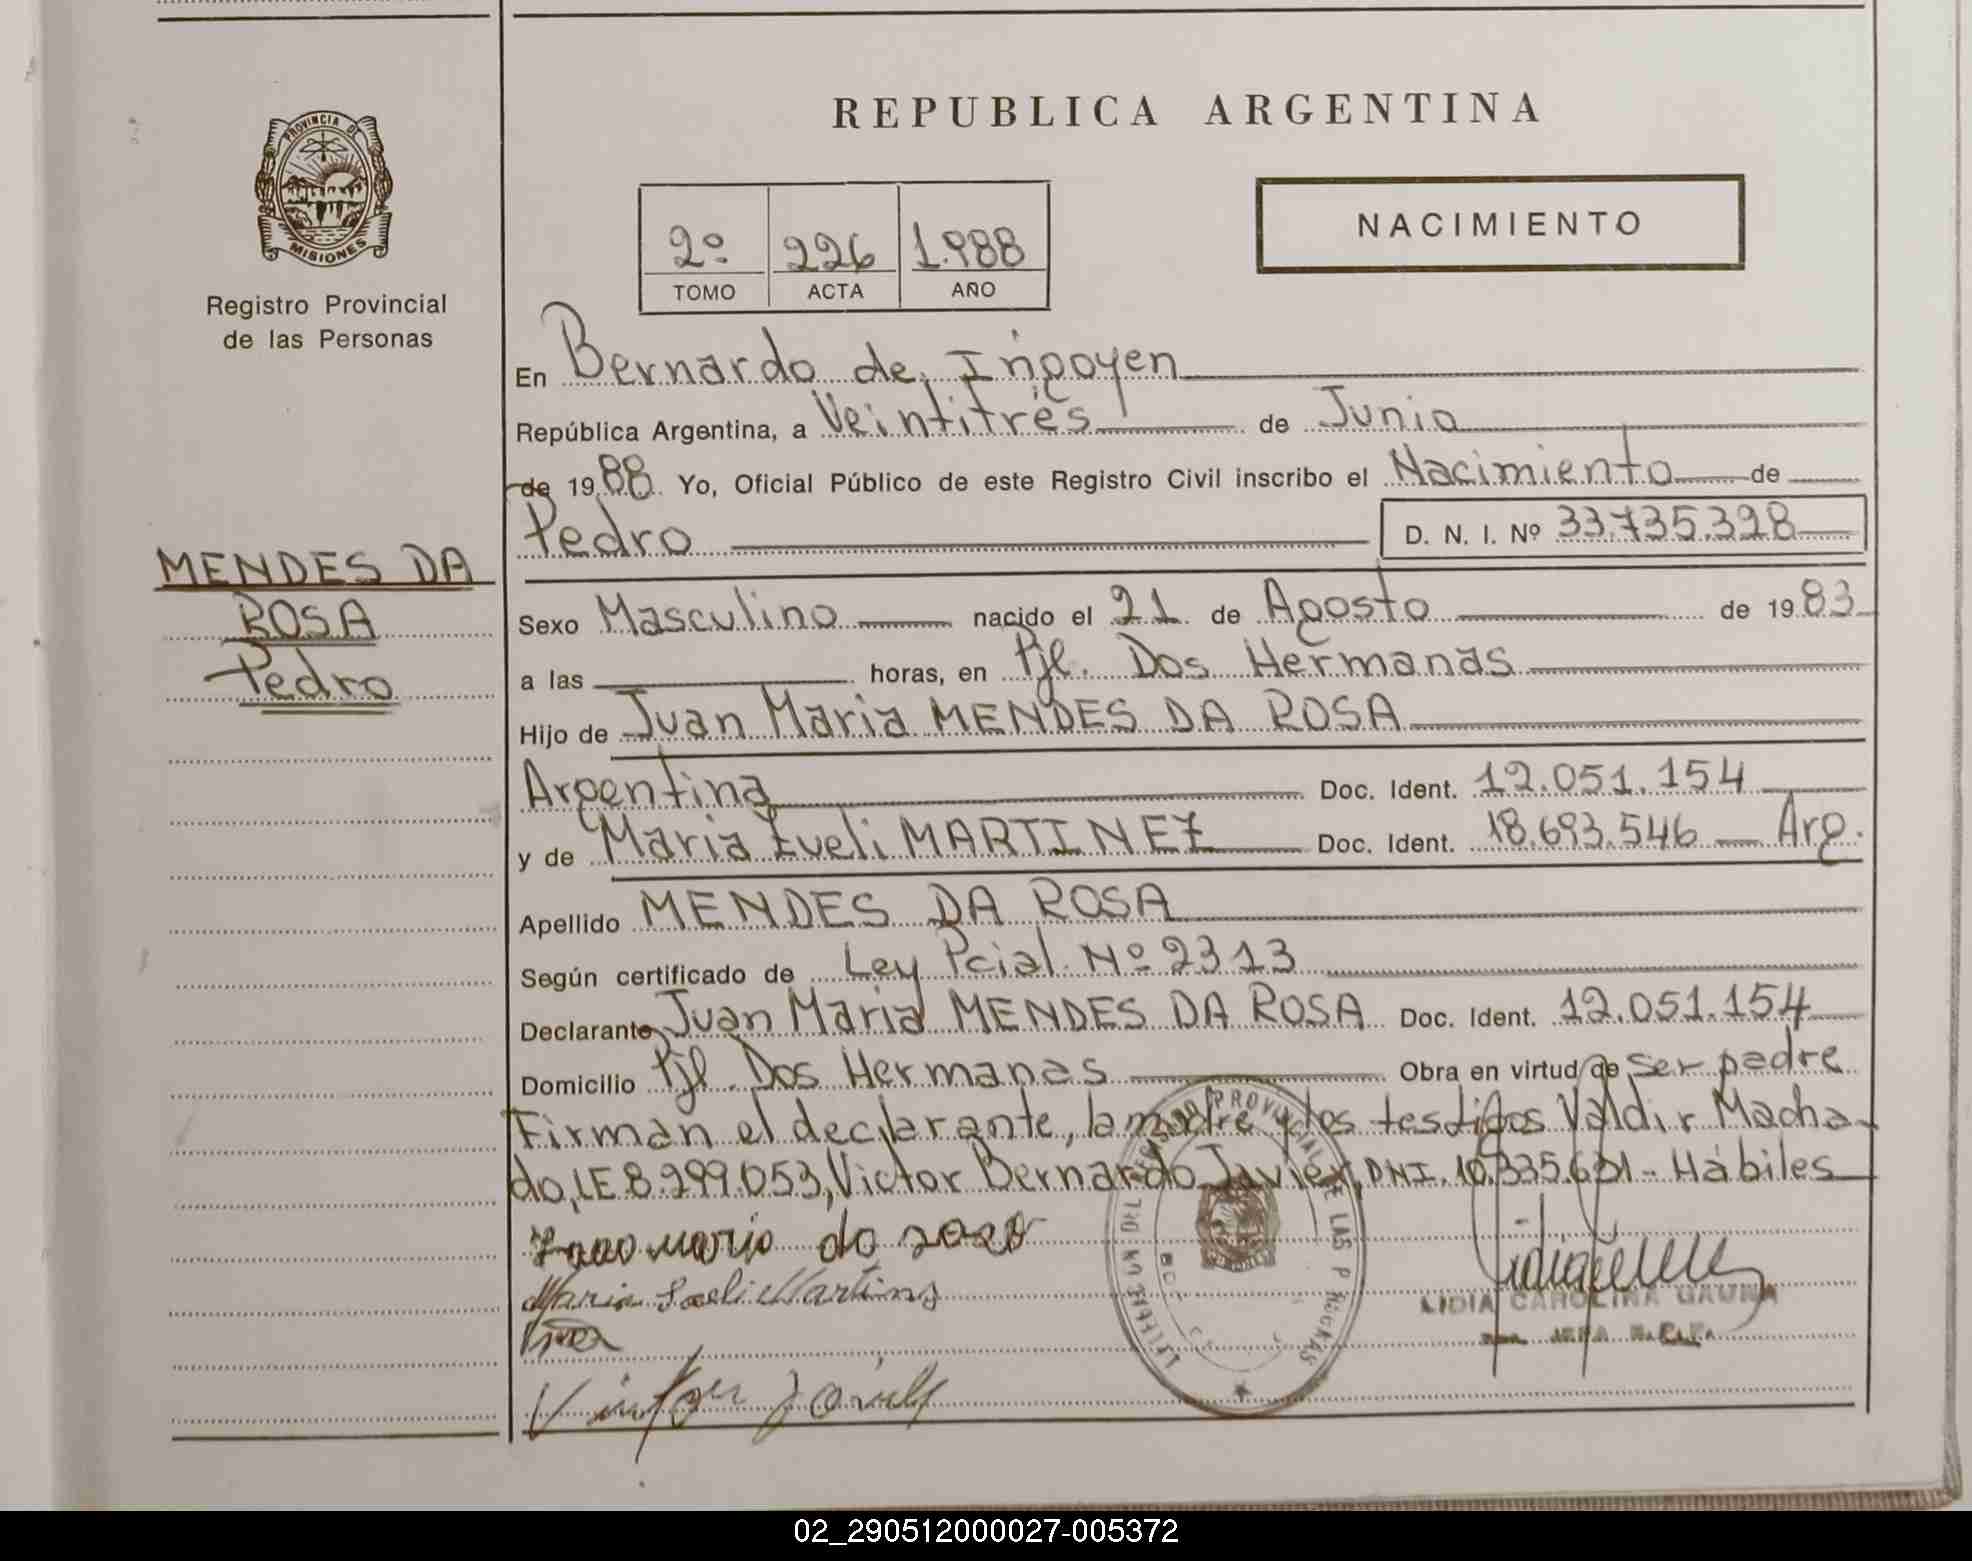 REPUBLICA ARGENTINA
PROVINCIA DE
MISIONES
Registro Provincial
de las Personas
NACIMIENTO
2º 226 1.988
TOMO ACTA AÑO
En Bernardo de Irigoyen
República Argentina, a Veintitrés de Junio
de 1988 Yo, Oficial Público de este Registro Civil inscribo el Nacimiento de
Pedro D. N. I. Nº 33.735.328
MENDES DA
ROSA
Pedro
Sexo Masculino nacido el 21 de Agosto de 1983
a las horas, en Pjl. Dos Hermanas
Hijo de Juan Maria MENDES DA ROSA
Argentina Doc. Ident. 12.051.154
y de Maria Eveli MARTINEZ Doc. Ident. 18.693.546 Arg.
Apellido MENDES DA ROSA
Según certificado de Ley Pcial. Nº 2313
Declarante Juan Maria MENDES DA ROSA Doc. Ident. 12.051.154
Domicilio Pjl. Dos Hermanas Obra en virtud de ser padre
Firman el declarante, la madre y los testigos Valdir Macha-
do, LE 8.299.053, Victor Bernardo Javier, DNI. 10.335.631 - Hábiles
LIDIA CAROLINA GAUNA
02_290512000027-005372